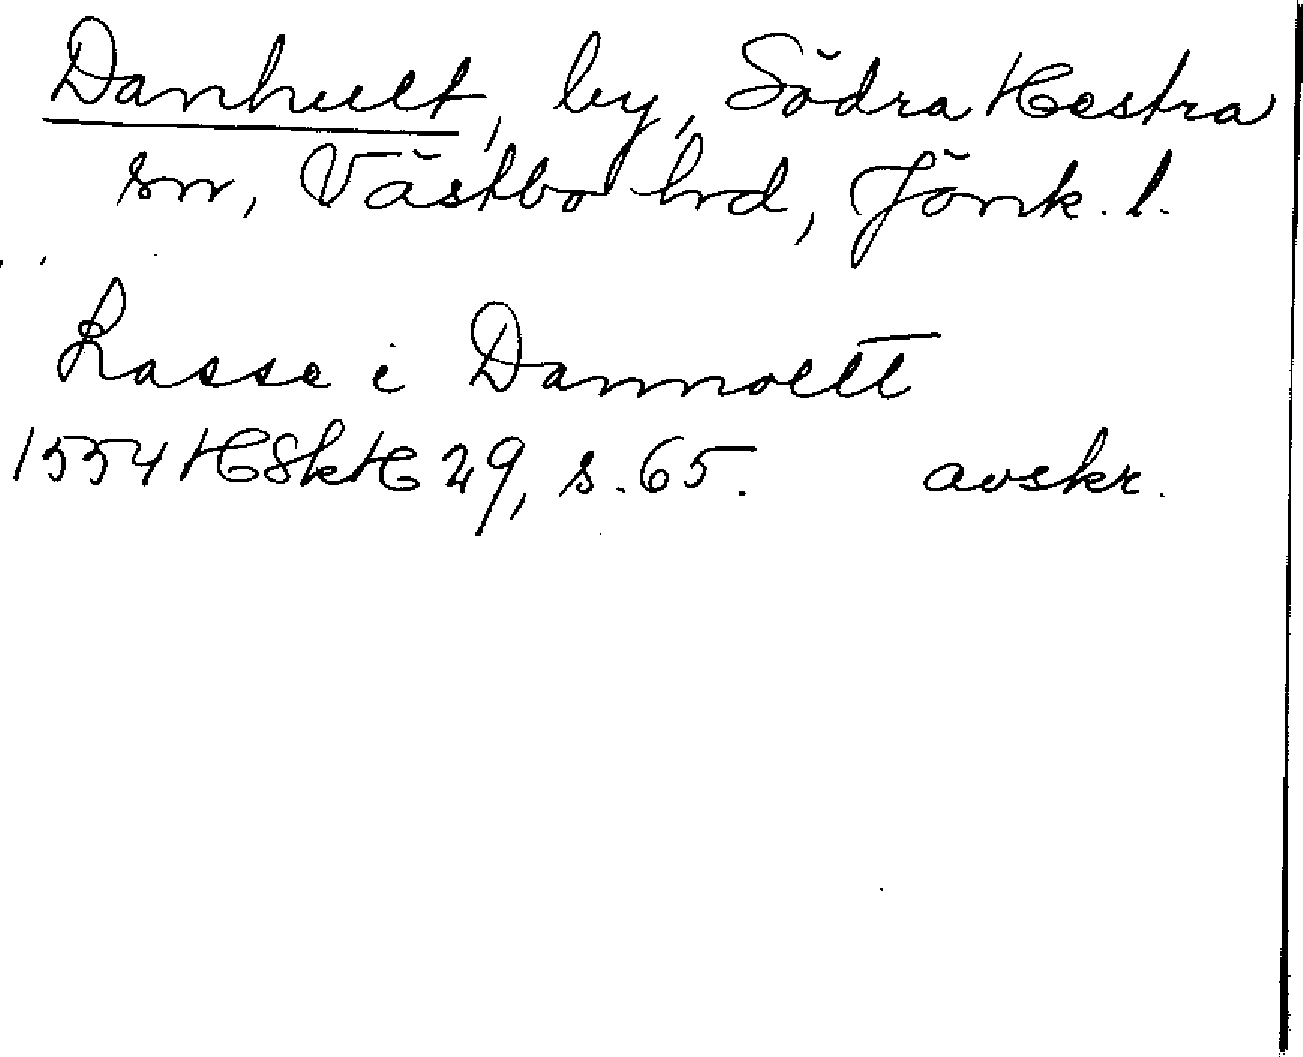 Danhult, by, Södra Hestra
sn, Västbo hd, Jönk. l.
Lasse i Dannoltt
1554 HSkH 29, s. 65. avskr.